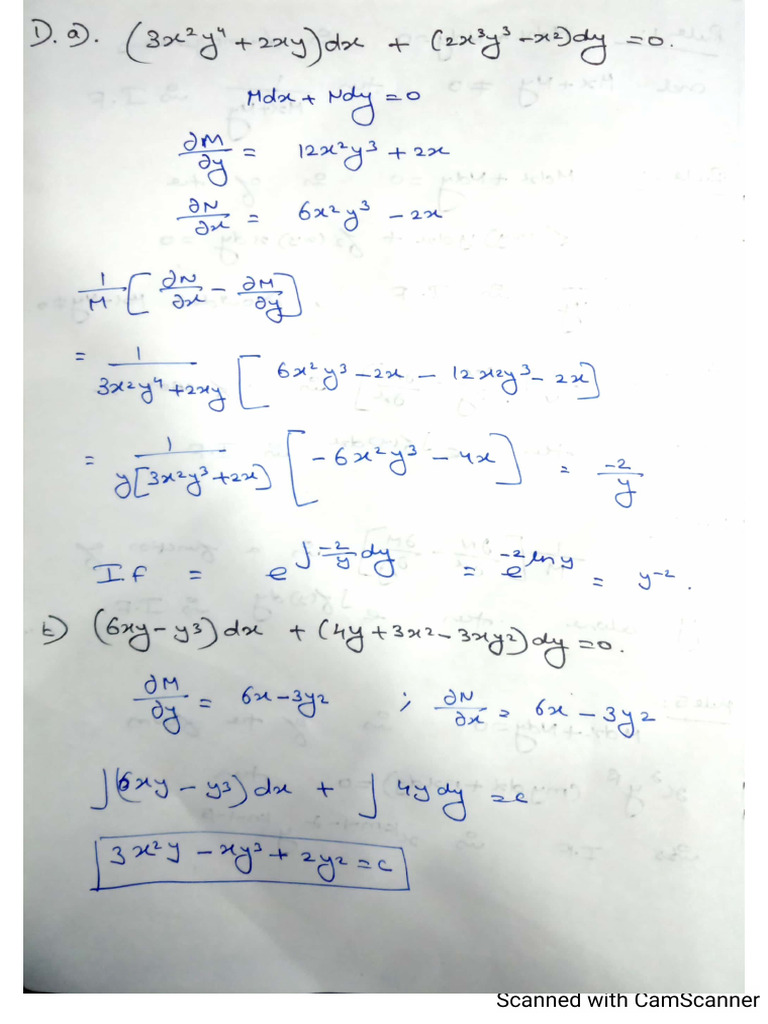 1). a). (3x²y⁴ + 2xy)dx + (2x³y³ - x²)dy = 0.
Mdx + Ndy = 0
∂M/∂y = 12x²y³ + 2x
∂N/∂x = 6x²y³ - 2x
1/M [∂N/∂x - ∂M/∂y]
= 1/(3x²y⁴ + 2xy) [6x²y³ - 2x - 12x²y³ - 2x]
= 1/(y[3x²y³ + 2x]) [-6x²y³ - 4x] = -2/y
I.f = e^(∫-2/y dy) = e^(-2 ln y) = y⁻².
b) (6xy - y³)dx + (4y + 3x² - 3xy²)dy = 0.
∂M/∂y = 6x - 3y² ; ∂N/∂x = 6x - 3y²
∫(6xy - y³)dx + ∫4y dy = c
3x²y - xy³ + 2y² = c
Scanned with CamScanner